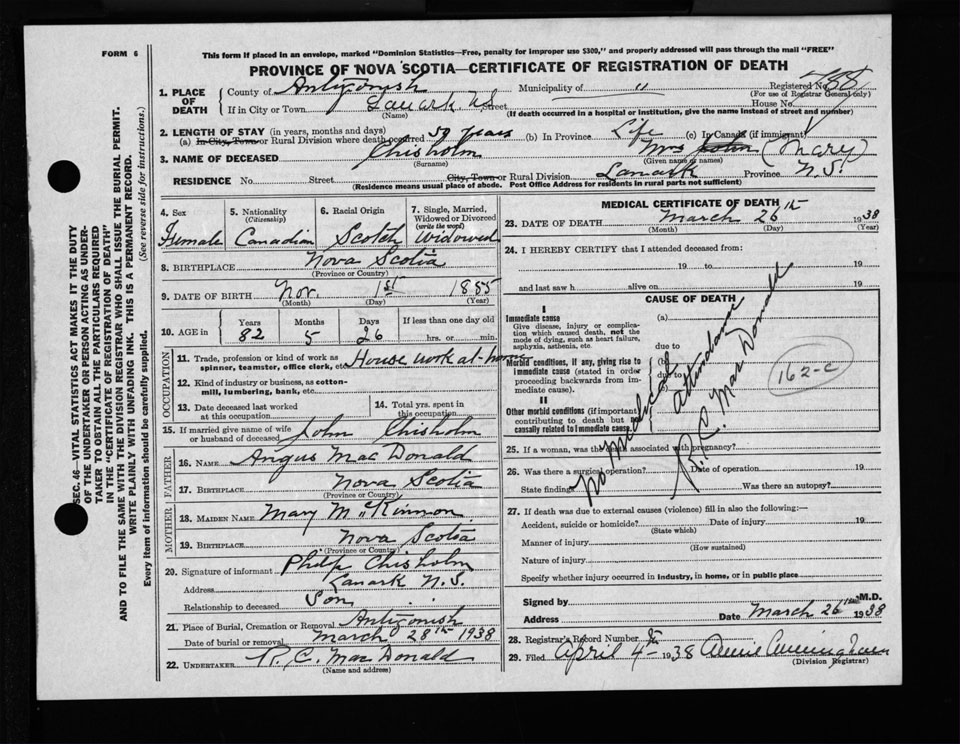 FORM 6
This form if placed in an envelope, marked "Dominion Statistics—Free, penalty for improper use $300," and properly addressed will pass through the mail "FREE"
PROVINCE OF NOVA SCOTIA—CERTIFICATE OF REGISTRATION OF DEATH
SEC. 46— VITAL STATISTICS ACT MAKES IT THE DUTY
OF THE UNDERTAKER OR PERSON ACTING AS UNDER-
TAKER TO OBTAIN ALL THE PARTICULARS REQUIRED
IN THE "CERTIFICATE OF REGISTRATION OF DEATH"
AND TO FILE THE SAME WITH THE DIVISION REGISTRAR WHO SHALL ISSUE THE BURIAL PERMIT.
WRITE PLAINLY WITH UNFADING INK. THIS IS A PERMANENT RECORD.
Every item of information should be carefully supplied. (See reverse side for instructions.)
1. PLACE OF DEATH County of Antigonish Municipality of " Registered No. 788
(For use of Registrar General only)
If in City or Town Lanark N.S. Street House No.
(Name) (If death occurred in a hospital or institution, give the name instead of street and number)
2. LENGTH OF STAY (in years, months and days)
(a) In City, Town or Rural Division where death occurred 50 years (b) In Province Life (c) In Canada (if immigrant)
3. NAME OF DECEASED Chisholm Mrs John (Mary)
(Surname) (Given name or names)
RESIDENCE No. Street City, Town or Rural Division Lanark Province N.S.
(Residence means usual place of abode. Post Office Address for residents in rural parts not sufficient)
4. Sex Female
5. Nationality (Citizenship) Canadian
6. Racial Origin Scotch
7. Single, Married, Widowed or Divorced (write the word) Widowed
8. BIRTHPLACE Nova Scotia
(Province or Country)
9. DATE OF BIRTH Nov. 1st 1855
(Month) (Day) (Year)
10. AGE in Years Months Days If less than one day old
82 5 26 hrs. or min.
OCCUPATION
11. Trade, profession or kind of work as spinner, teamster, office clerk, etc. House work at home
12. Kind of industry or business, as cotton-mill, lumbering, bank, etc.
13. Date deceased last worked at this occupation
14. Total yrs. spent in this occupation
15. If married give name of wife or husband of deceased John Chisholm
FATHER
16. NAME Angus MacDonald
17. BIRTHPLACE Nova Scotia
(Province or Country)
MOTHER
18. MAIDEN NAME Mary McKinnon
19. BIRTHPLACE Nova Scotia
(Province or Country)
20. Signature of informant Philip Chisholm
Address Lanark N.S.
Relationship to deceased Son
21. Place of Burial, Cremation or Removal Antigonish
Date of burial or removal March 28th 1938
22. UNDERTAKER R. C. MacDonald
(Name and address)
MEDICAL CERTIFICATE OF DEATH
23. DATE OF DEATH March 26th 1938
(Month) (Day) (Year)
24. I HEREBY CERTIFY that I attended deceased from:
19 to 19
and last saw h alive on 19
CAUSE OF DEATH
I
Immediate cause (a)
Give disease, injury or complication which caused death, not the mode of dying, such as heart failure, asphyxia, asthenia, etc.
due to
Morbid conditions, if any, giving rise to immediate cause (stated in order proceeding backwards from immediate cause). (b)
due to
II
Other morbid conditions (if important) contributing to death but not causally related to immediate cause.
No medical attendance
R. C. MacDonald
162-c
25. If a woman, was the death associated with pregnancy?
26. Was there a surgical operation? Date of operation 19
State findings Was there an autopsy?
27. If death was due to external causes (violence) fill in also the following:—
Accident, suicide or homicide? Date of injury 19
(State which)
Manner of injury
(How sustained)
Nature of injury
Specify whether injury occurred in industry, in home, or in public place
Signed by M.D.
Address Date March 26th 1938
28. Registrar's Record Number
29. Filed April 4th 1938 Annie Cunningham
(Division Registrar)